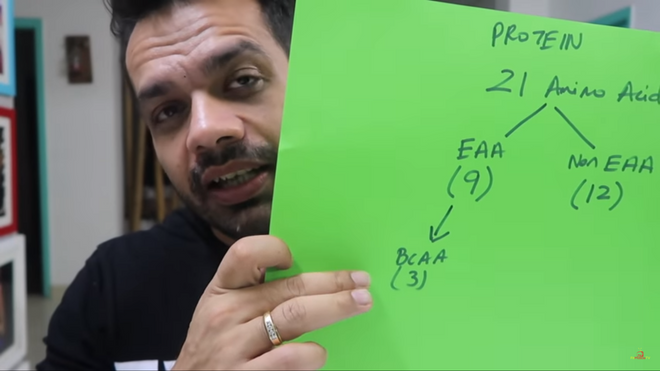 PROTEIN
21 Amino Acid
EAA Non EAA
(9) (12)
BCAA
(3)